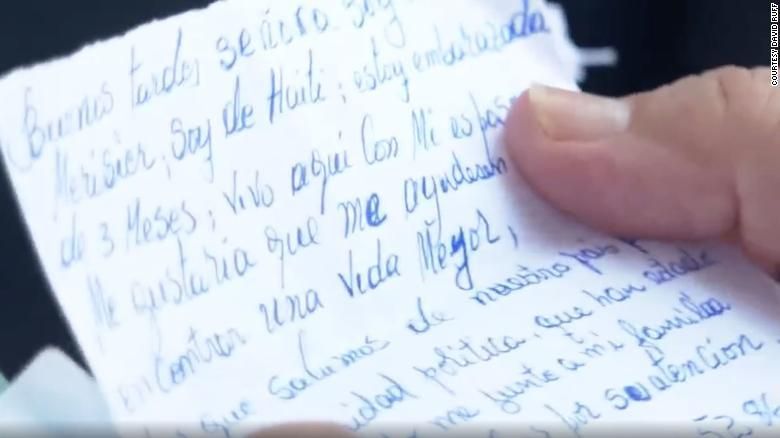 Buenas tardes señora soy
Merisier, soy de Haiti; estoy embarazada
de 3 Meses; vivo aquí con Mi esposo
Me gustaria que me ayudasen
encontrar una vida Mejor,
que salimos de nuestro país
política, que han estado
me junto a mi familia
por su atención
COURTESY DAVID RUFF